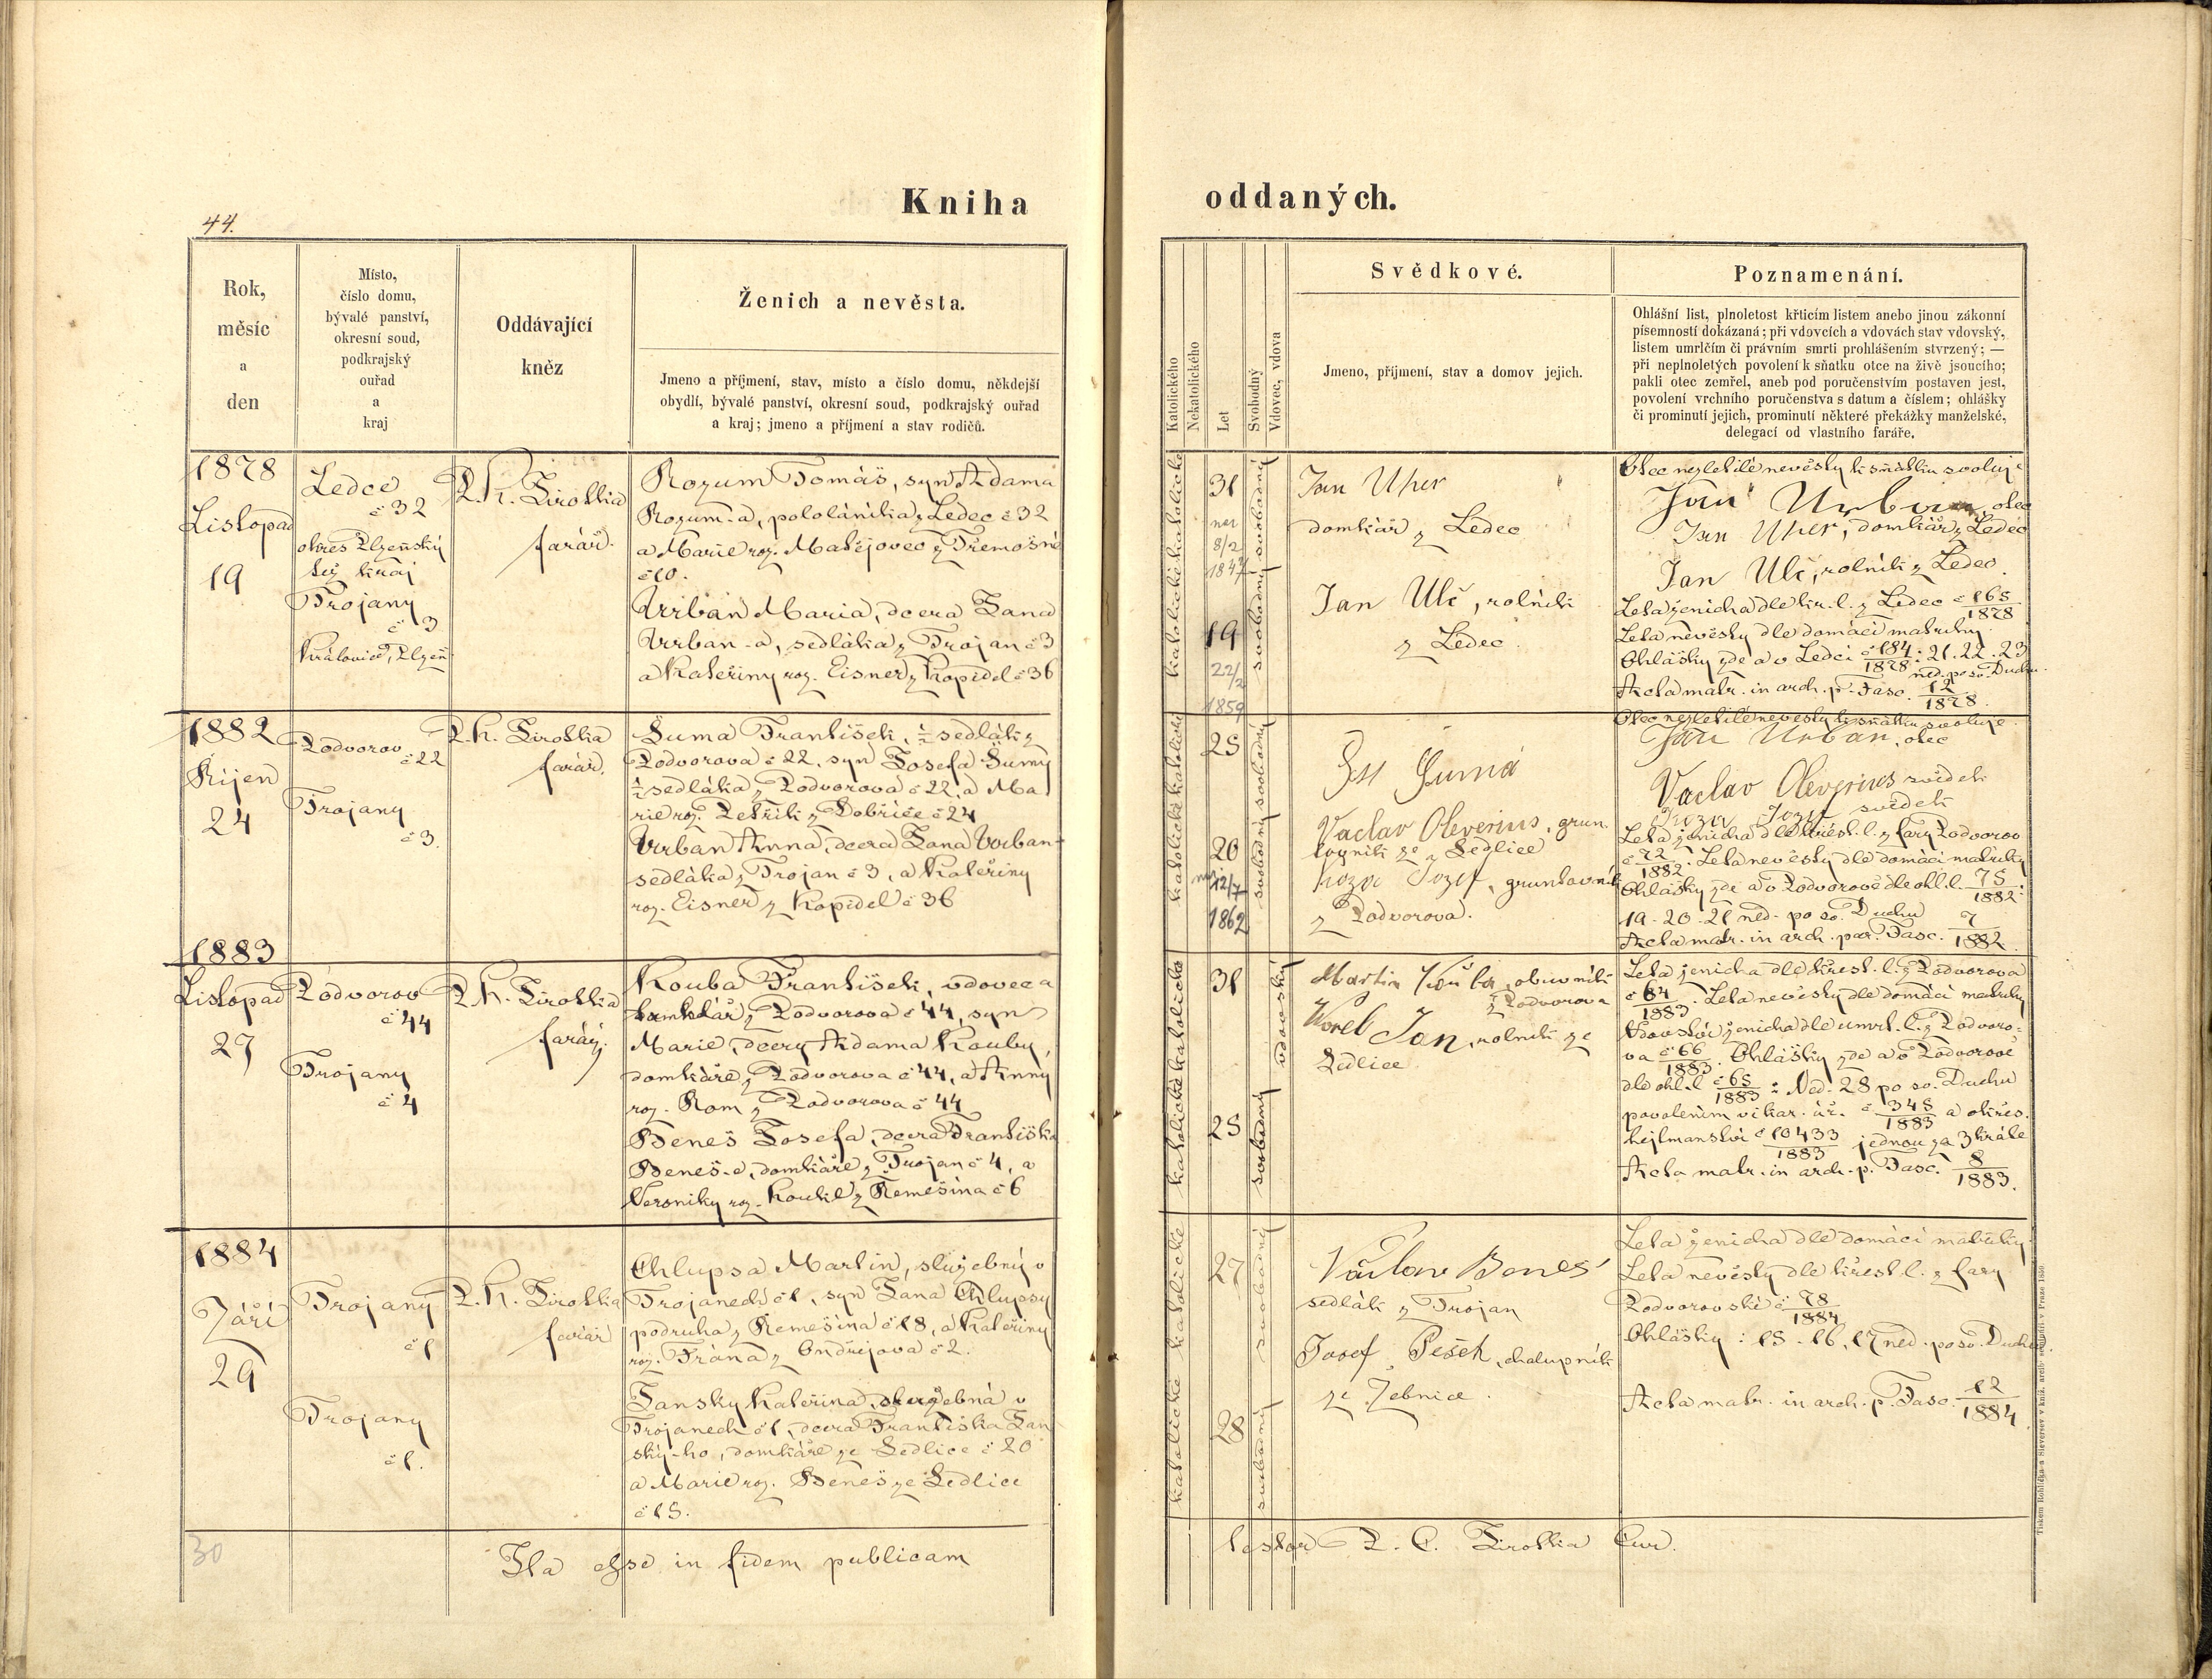 44.
Kniha
Rok,
měsíc
a
den
Místo,
číslo domu,
bývalé panství,
okresní soud,
podkrajský
ouřad
a
kraj
Oddávající
kněz
Ženich a nevěsta.
Jmeno a příjmení, stav, místo a číslo domu, někdejší
obydlí, bývalé panství, okresní soud, podkrajský ouřad
a kraj; jmeno a příjmení a stav rodičů.
1878
Listopad
19
Ledce
č 32
okres Plzeňský
týž kraj
Trojany
č 3
Kralovice, Plzeň
farář.
Rozum Tomáš, syn Adama
Rozum-a, pololáníka z Ledec č 32
a Marie roz. Matějovec z Třemošné
č 10.
Urban Maria, dcera Jana
Urban-a, sedláka z Trojan č 3
a Kateřiny roz. Eisner z Kopidel č 36
1882
Říjen
24
Podvorov
č 22
Trojany
č 3.
farář.
Šuma František, ½ sedlák z
Podvorova č 22, syn Josefa Šumy
½ sedláka z Podvorova č 22, a Ma
rie roz. Petřík z Dobříče č 24
Urban Anna, dcera Jana Urban-
sedláka z Trojan č 3, a Kateřiny
roz. Eisner z Kopidel č 36
1883
Listopad
27
Podvorov
č 44
Trojany
č 4
farář.
Kouba František, vdovec a
z Podvorova č 44, syn
Marie, dcery Adama Kouby,
domkáře z Podvorova č 44, a Anny
roz. Rom z Podvorova č 44
Beneš Josefa, dcera Františka
Beneš-e, domkáře z Trojan č 4, a
Veroniky roz. Koukl z Remešína č 6
1884
Září
29
Trojany
č 1
Trojany
č 1.
farář
Chlupsa Martin, služebný v
Trojanech č 1, syn Jana Chlupsy
podruha z Remešína č 18, a Kateřiny
roz. Frána z Ondřejova č 2.
Janský Kateřina, služebná v
Trojanech č 1, dcera Františka Jan
ský-ho, domkáře ze Sedlice č 20
a Marie roz. Beneš ze Sedlice
č 15.
30
Ita esse in fidem publicam
oddaných.
Katolického
Nekatolického
Let
Svobodný
Vdovec, vdova
Svědkové.
Jmeno, příjmení, stav a domov jejich.
Poznamenání.
Ohlášní list, plnoletost křticím listem anebo jinou zákonní
písemností dokázaná; při vdovcích a vdovách stav vdovský,
listem umrlčím či právním smrti prohlášením stvrzený; —
při neplnoletých povolení k sňatku otce na živě jsoucího;
pakli otec zemřel, aneb pod poručenstvím postaven jest,
povolení vrchního poručenstva s datum a číslem; ohlášky
či prominutí jejich, prominutí některé překážky manželské,
delegací od vlastního faráře.
katolické katolické
31
nar
8/2
1847
19
22/2
1859
svobodný svobodný
Jan Uher
domkář z Ledec
Jan Ulč, rolník
z Ledec
Otec nezletilé nevěsty k sňatku svoluje
Jan Urban, otec
Jan Uher, domkář z Ledec
Jan Ulč, rolník z Ledec.
Leta ženicha dle kr. l. z Ledec č 165/1878
Leta nevěsty dle domácí matriky
Ohlášky zde a v Ledci č 184/1878: 21. 22. 23
ned. po sv. Duchu.
Acta matr. in arch. p. Fasc. 12/1878.
katolické katolické
25
20
nar 12/7
1862
svobodný svobodný
Šumá
Vaclav Oleverius, grun
tovník ze Sedlice
Jozef, gruntovník
z Podvorova.
Otec nezletilé nevěsty k sňatku svoluje
Jan Urban, otec
Vaclav Oleverius svědek
Jozef svědek
Leta ženicha dle křest. l. z fary Podvorov
č 72/1882. Leta nevěsty dle domácí matriky
Ohlášky zde a v Podvorově dle ohl. l. 75/1882:
19. 20. 21 ned. po sv. Duchu
Acta matr. in arch. par. Fasc. 7/1882.
katolické katolické
31
25
vdovský
svobodný
Martin Kouba, obuvník
z Podvorova
Worel Jan, rolník ze
Sedlice
Leta ženicha dle křest. l. z Podvorova
č 64/1883. Leta nevěsty dle domácí matriky
Vdovství ženicha dle umrl. l. z Podvoro-
va č 66/1883. Ohlášky zde a v Podvorově
dle ohl. l č 65/1883: Ned. 28 po sv. Duchu
povolením vikar. úř. č 345/1883 a okres.
hejtmanství č 10433/1883 jednou za 3 kráte
Acta matr. in arch. p. Fasc. 8/1883.
katolické katolické
27
28
svobodný
svobodný
Václav Beneš
sedlák z Trojan
Josef Pešek, chalupník
ze Žebnice.
Leta ženicha dle domácí matriky.
Leta nevěsty dle křest. l. z fary
Podvorovské č 78/1884
Ohlášky: 15. 16. 17 ned. po sv. Duchu.
Acta matr. in arch. p. Fasc. 12/1884.
testor